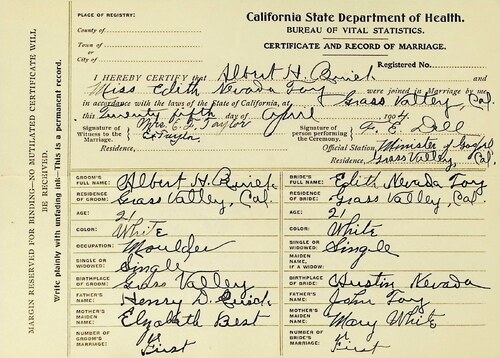 PLACE OF REGISTRY:
County of
Town of
or
City of
California State Department of Health.
BUREAU OF VITAL STATISTICS.
CERTIFICATE AND RECORD OF MARRIAGE.
Registered No.
I HEREBY CERTIFY that Albert H. and
Miss Edith Nevada Foy were joined in Marriage by me
in accordance with the laws of the State of California, at Grass Valley, Cal.
this Twenty fifth day of April 1904.
Signature of Witness to the Marriage, Mrs. E. F. Taylor
Ex Taylor
Signature of person performing the Ceremony, F. E. Dell
Residence,
Official Station, Minister of Gospel
Residence, Grass Valley, Cal.
GROOM'S FULL NAME: Albert H.
RESIDENCE OF GROOM: Grass Valley, Cal.
AGE: 21
COLOR: White
OCCUPATION: Moulder
SINGLE OR WIDOWED: Single
BIRTHPLACE OF GROOM: Grass Valley
FATHER'S NAME: Henry D.
MOTHER'S MAIDEN NAME: Elizabeth Best
NUMBER OF GROOM'S MARRIAGE: First
BRIDE'S FULL NAME: Edith Nevada Foy
RESIDENCE OF BRIDE: Grass Valley, Cal.
AGE: 21
COLOR: White
SINGLE OR WIDOWED: Single
MAIDEN NAME, IF A WIDOW:
BIRTHPLACE OF BRIDE: Austin Nevada
FATHER'S NAME: John Foy
MOTHER'S MAIDEN NAME: Mary White
NUMBER OF BRIDE'S MARRIAGE: First
MARGIN RESERVED FOR BINDING—NO MUTILATED CERTIFICATE WILL
BE RECEIVED.
Write plainly with unfading ink—This is a permanent record.